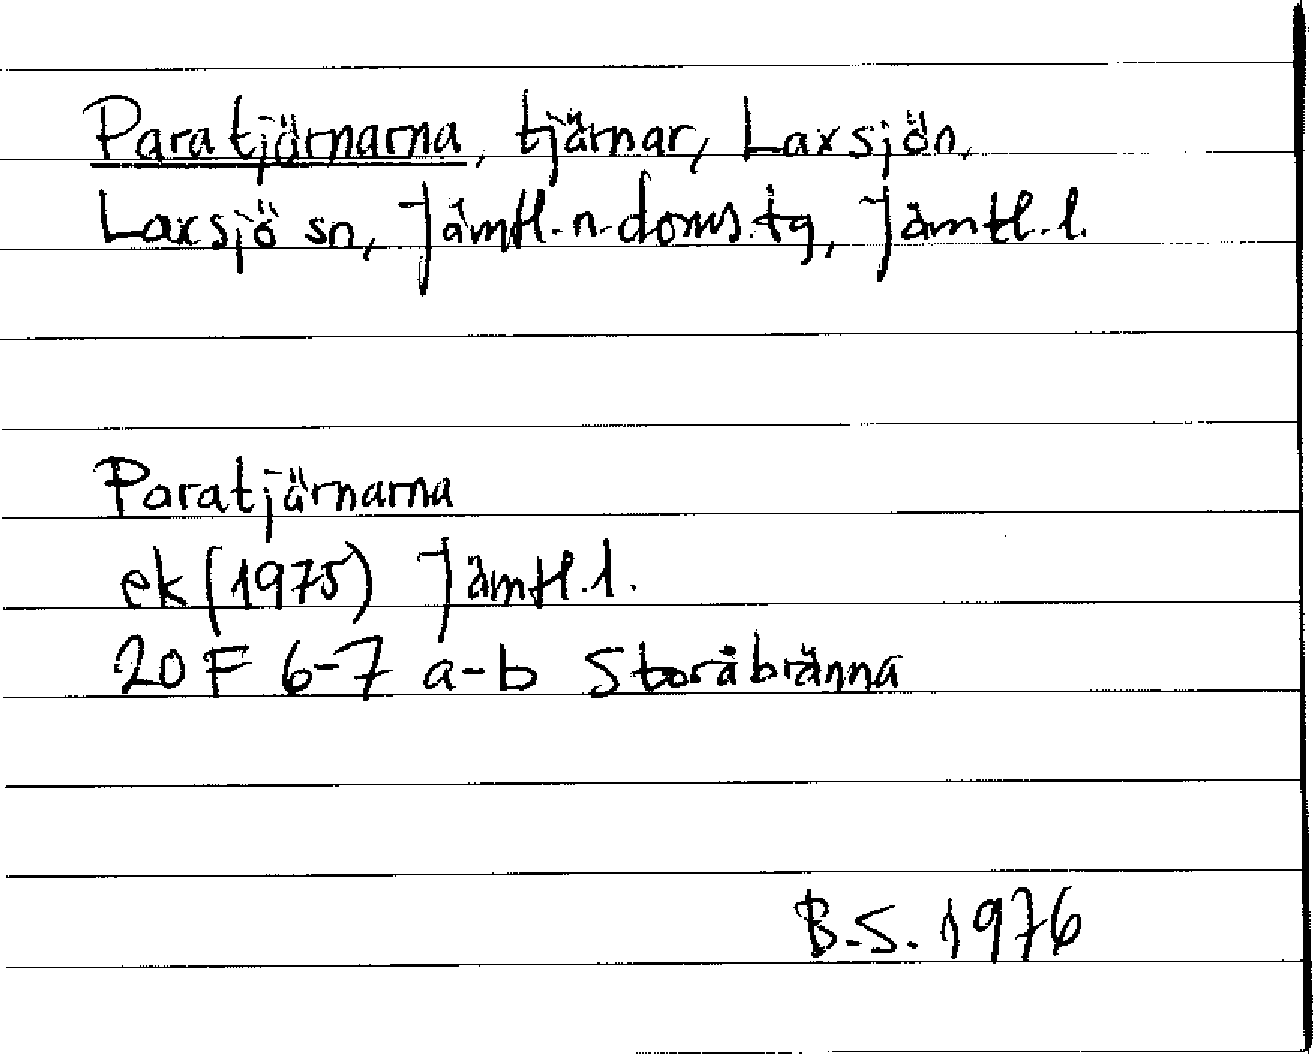 Paratjärnarna, tjärnar, Laxsjön,
Laxsjö sn, Jämtl. n. doms. tg, Jämtl. l.
Paratjärnarna
ek (1975) Jämtl. l.
20 F 6-7 a-b Storåbränna
B.S. 1976